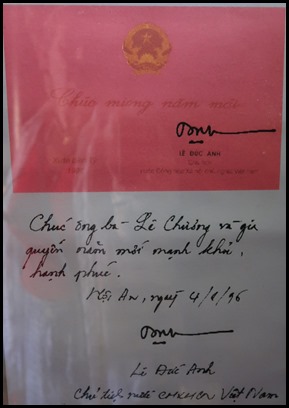 Chúc mừng năm mới
LÊ ĐỨC ANH
Chúc ông bà Lê Chương và gia
quyến năm mới mạnh khỏe,
hạnh phúc.
Hội An, ngày 4/1/96
Lê Đức Anh
Chủ tịch nước CHXHCN Việt Nam